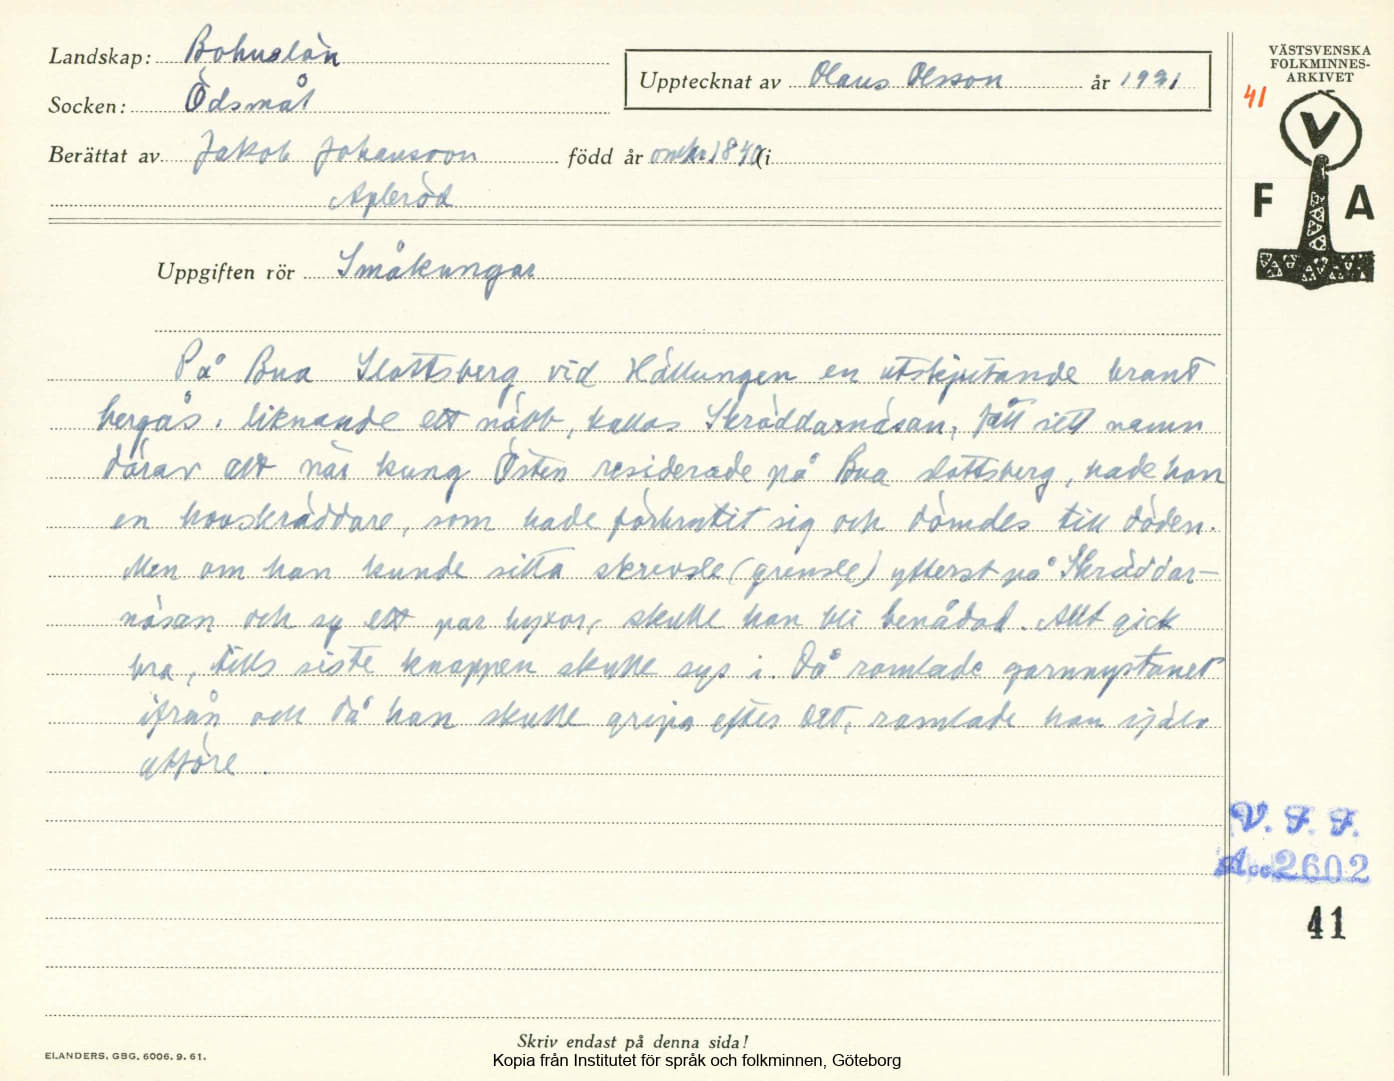 Landskap: Bohuslän
Socken: Ödsmål
Upptecknat av Olaus Olsson år 1931
Berättat av Jakob Johansson född år omkr. 1840 i
Apleröd
Uppgiften rör Småkungar
På Bua Slottsberg vid Hällungen en utskjutande brant
bergås, liknande ett näbb, kallas Skräddarnäsan, fått sitt namn
därav att när kung Östen residerade på Bua slottsberg, hade han
en hovskräddare, som hade förbrutit sig och dömdes till döden.
Men om han kunde sitta skrevsle (grensle) ytterst på Skräddar-
näsan och sy ett par byxor, skulle han bli benådad. Allt gick
bra, tills siste knappen skulle sys i. Då ramlade garnnystanet
ifrån och då han skulle gripa efter det, ramlade han själv
utföre.
VÄSTSVENSKA
FOLKMINNES-
ARKIVET
41
V
F A
V. F. F.
Acc. 2602
41
Skriv endast på denna sida!
ELANDERS, GBG. 6006. 9. 61.
Kopia från Institutet för språk och folkminnen, Göteborg